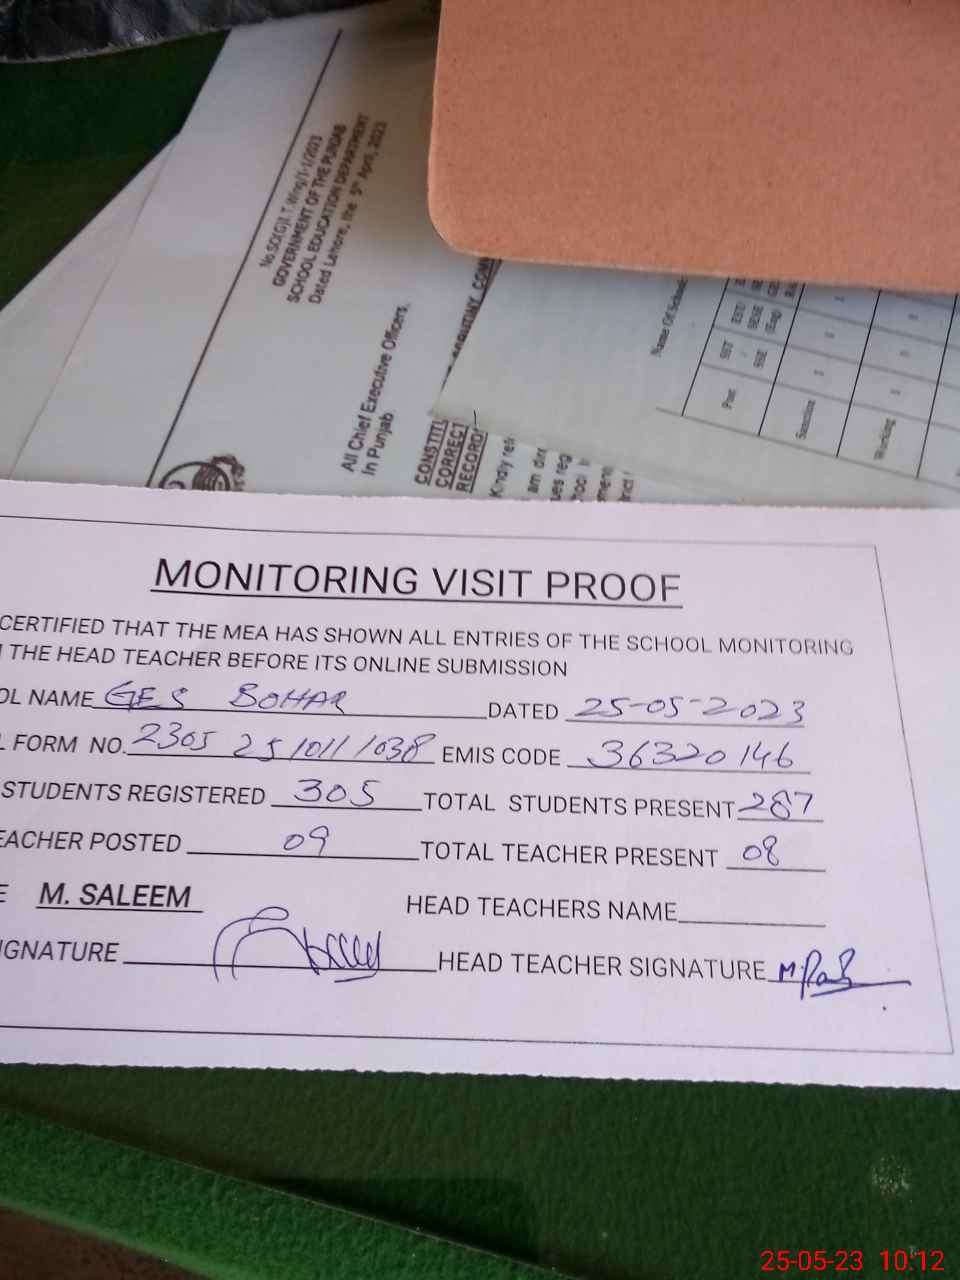 No.SO(G)I.T.Wing/1-1/2023
GOVERNMENT OF THE PUNJAB
SCHOOL EDUCATION DEPARTMENT
Dated Lahore, the 5th April, 2023
All Chief Executive Officers,
In Punjab.
CONSTITU
CORRECT
RECORD
Kindly ref
am dire
ues reg
Name Of School
Post SST / SSE EST/ SESE (Eng)
Sanction 1 1 1
Working 1 1 1
MONITORING VISIT PROOF
CERTIFIED THAT THE MEA HAS SHOWN ALL ENTRIES OF THE SCHOOL MONITORING
THE HEAD TEACHER BEFORE ITS ONLINE SUBMISSION
OL NAME GES BOHAR DATED 25-05-2023
FORM NO. 2305 25 1011 1038 EMIS CODE 36320146
STUDENTS REGISTERED 305 TOTAL STUDENTS PRESENT 287
EACHER POSTED 09 TOTAL TEACHER PRESENT 08
E M. SALEEM HEAD TEACHERS NAME
IGNATURE HEAD TEACHER SIGNATURE
25-05-23 10:12